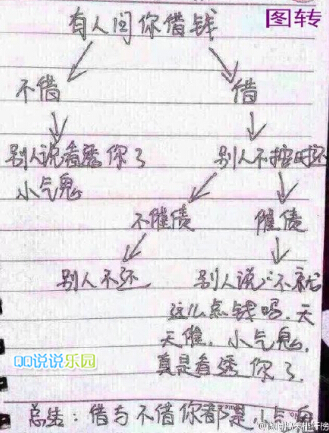 图转
有人问你借钱
不借
借
别人说看透你了
小气鬼
别人不按时还
不催债
催债
别人不还
别人说:"不就
这么点钱吗,天
天催,小气鬼,
真是看透你了。
QQ说说乐园
总结:借与不借你都是小气鬼